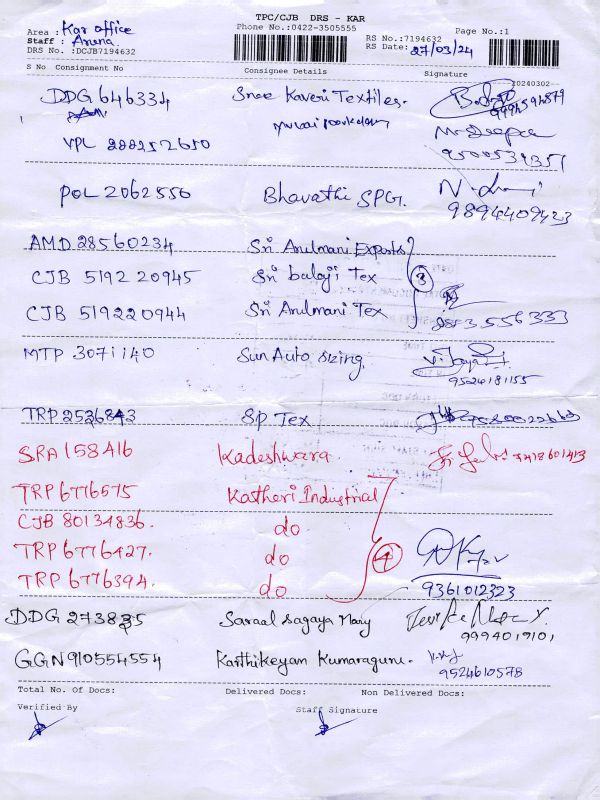 TPC/CJB DRS - KAR
Area : Kar office
Phone No.:0422-3505555
Page No.:1
Staff : Aruna
RS No.:7194632
DRS No. :DCJB7194632
RS Date: 27/03/24
S No Consignment No Consignee Details Signature
20240302--
DDG 646334 Sree Kaveri Textiles.
VPL 288252650
9500539357
POL 2062550 Bhavathi SPG.
9894409423
AMD 28560234 Sri Arulmani Exports
CJB 5192 20945 Sri balaji Tex 3
CJB 519220944 Sri Arulmani Tex
MTP 3071140 Sun Auto sizing.
9524181155
TRP 2526843 SP Tex
SRA 158416 Kadeshwara
TRP 6776575 Kastheri Industrial
CJB 80134836. do
TRP 6776427. do 4
TRP 6776394. do
9361012323
DDG 273835 Saraal Sagaya Mary
9994019101
GGN 910554554 Karthikeyam Kumaraguru.
9524610578
Total No. Of Docs: Delivered Docs: Non Delivered Docs:
Verified By Staff Signature